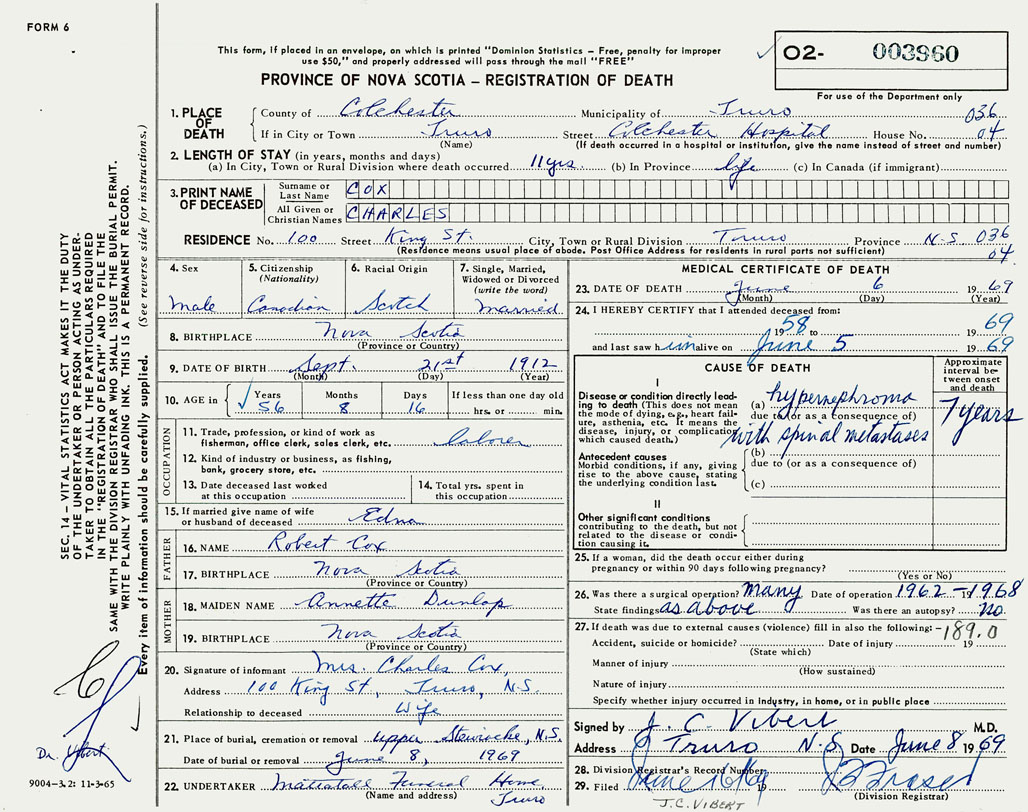 FORM 6
This form, if placed in an envelope, on which is printed "Dominion Statistics – Free, penalty for improper
use $50," and properly addressed will pass through the mail "FREE"
PROVINCE OF NOVA SCOTIA – REGISTRATION OF DEATH
✓ O2- 003960
For use of the Department only
1. PLACE OF DEATH
County of Colchester Municipality of Truro 036
If in City or Town Truro Street Colchester Hospital House No. 04
(Name) (If death occurred in a hospital or institution, give the name instead of street and number)
2. LENGTH OF STAY (in years, months and days)
(a) In City, Town or Rural Division where death occurred 11 yrs. (b) In Province life (c) In Canada (if immigrant)
3. PRINT NAME OF DECEASED
Surname or Last Name COX
All Given or Christian Names CHARLES
RESIDENCE No. 100 Street King St. City, Town or Rural Division Truro Province N.S 036
(Residence means usual place of abode. Post Office Address for residents in rural parts not sufficient) 04
4. Sex Male
5. Citizenship (Nationality) Canadian
6. Racial Origin Scotch
7. Single, Married, Widowed or Divorced (write the word) Married
8. BIRTHPLACE Nova Scotia
(Province or Country)
9. DATE OF BIRTH Sept. 21st 1912
(Month) (Day) (Year)
10. AGE in ✓ Years 56 Months 8 Days 16 If less than one day old
hrs. or min.
OCCUPATION
11. Trade, profession, or kind of work as
fisherman, office clerk, sales clerk, etc. laborer
12. Kind of industry or business, as fishing,
bank, grocery store, etc.
13. Date deceased last worked
at this occupation
14. Total yrs. spent in
this occupation
15. If married give name of wife
or husband of deceased Edna
FATHER
16. NAME Robert Cox
17. BIRTHPLACE Nova Scotia
(Province or Country)
MOTHER
18. MAIDEN NAME Annette Dunlop
19. BIRTHPLACE Nova Scotia
(Province or Country)
20. Signature of informant Mrs. Charles Cox,
Address 100 King St, Truro, N.S.
Relationship to deceased Wife
21. Place of burial, cremation or removal Upper Stewiacke, N.S.
Date of burial or removal June 8, 1969
22. UNDERTAKER Mattatall Funeral Home,
(Name and address) Truro
MEDICAL CERTIFICATE OF DEATH
23. DATE OF DEATH June 6 1969
(Month) (Day) (Year)
24. I HEREBY CERTIFY that I attended deceased from:
1958 to 1969
and last saw him alive on June 5 1969
CAUSE OF DEATH
Approximate interval between onset and death
I
Disease or condition directly leading to death (This does not mean the mode of dying, e.g., heart failure, asthenia, etc. It means the disease, injury, or complication which caused death.)
(a) hypernephroma 7 years
due to (or as a consequence of)
with spinal metastases
Antecedent causes
Morbid conditions, if any, giving rise to the above cause, stating the underlying condition last.
(b)
due to (or as a consequence of)
(c)
II
Other significant conditions
contributing to the death, but not related to the disease or condition causing it.
25. If a woman, did the death occur either during
pregnancy or within 90 days following pregnancy?
(Yes or No)
26. Was there a surgical operation? many Date of operation 1962 – 1968
State findings as above Was there an autopsy? no
27. If death was due to external causes (violence) fill in also the following: – 189.0
Accident, suicide or homicide? Date of injury 19
(State which)
Manner of injury
(How sustained)
Nature of injury
Specify whether injury occurred in industry, in home, or in public place
Signed by J. C. Vibert M.D.
Address Truro N.S Date June 8 1969
28. Division Registrar's Record Number
29. Filed June 16/69 19
(Division Registrar)
J.C. VIBERT
SEC. 14 – VITAL STATISTICS ACT MAKES IT THE DUTY
OF THE UNDERTAKER OR PERSON ACTING AS UNDER-
TAKER TO OBTAIN ALL THE PARTICULARS REQUIRED
IN THE "REGISTRATION OF DEATH" AND TO FILE THE
SAME WITH THE DIVISION REGISTRAR WHO SHALL ISSUE THE BURIAL PERMIT.
WRITE PLAINLY WITH UNFADING INK. THIS IS A PERMANENT RECORD.
Every item of information should be carefully supplied. (See reverse side for instructions.)
Dr. Vibert
9004–3.2: 11-3-65